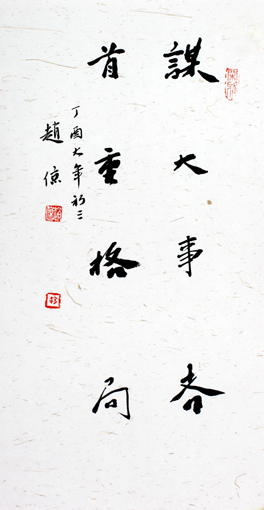 謀大事者
首重格局
丁酉大年初三
趙倞